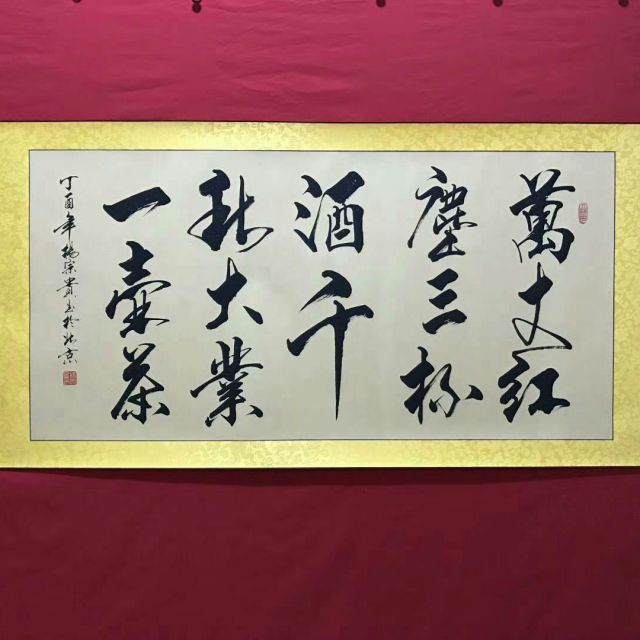 萬丈紅
塵三杯
酒千
秋大業
一壺茶
丁酉年楊榮貴書於北京